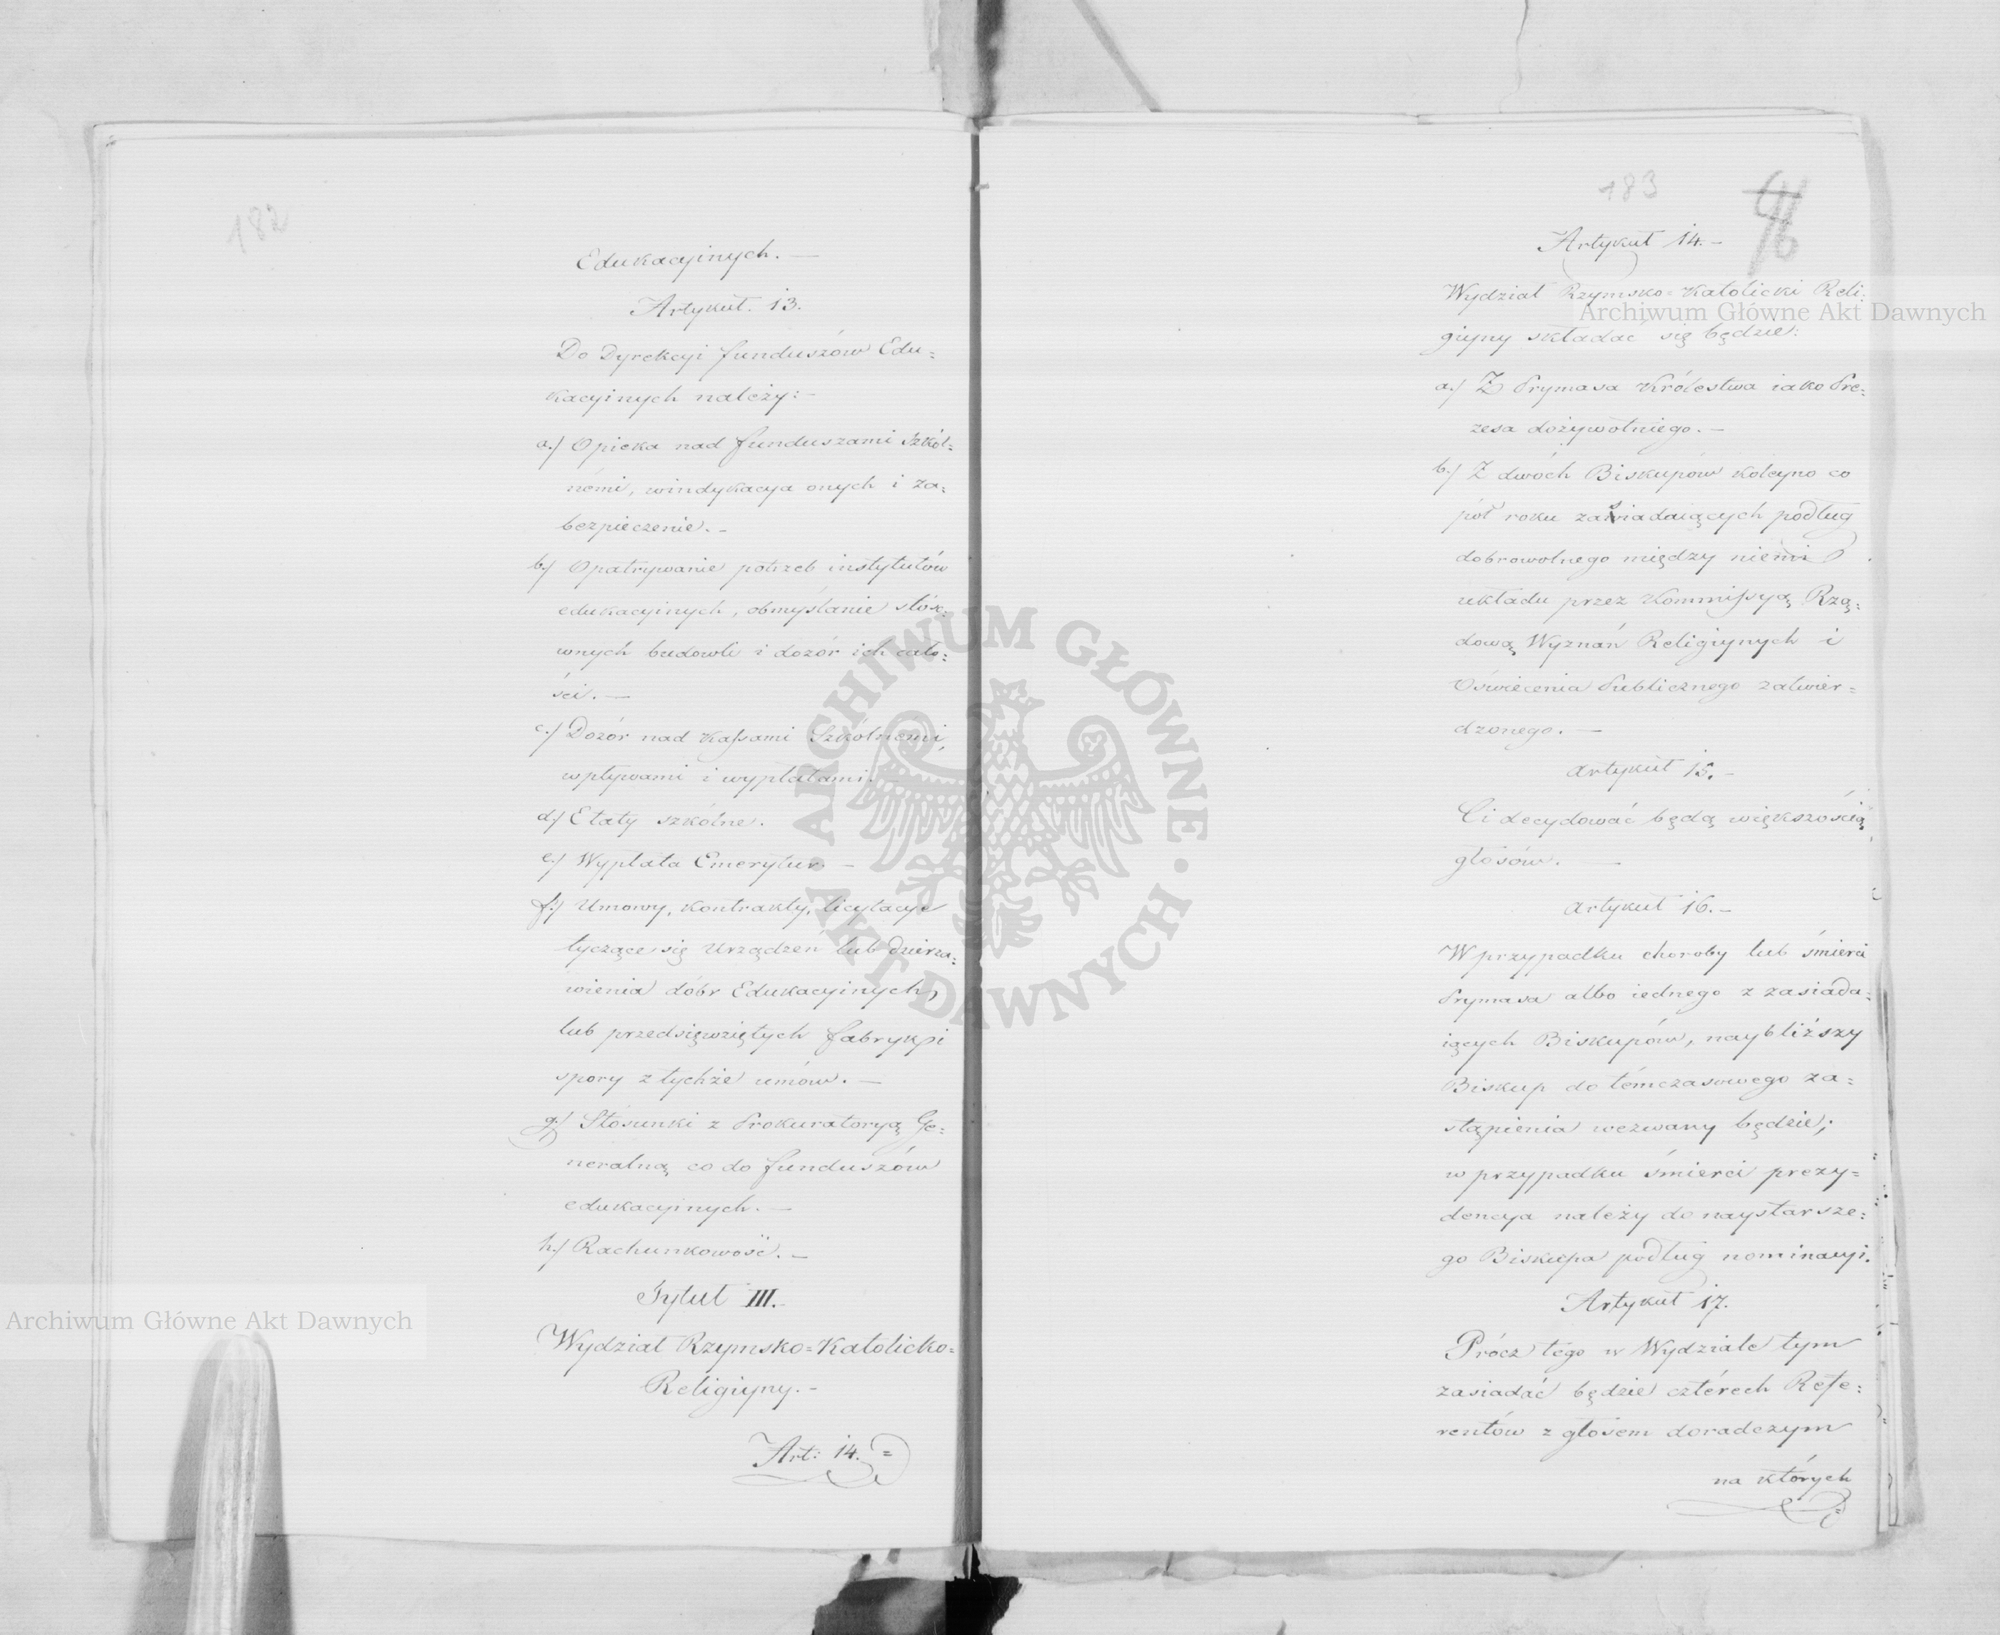 182
Edukacyinych. —
Artykuł. 13.
Do Dyrekcyi funduszów Edu=
kacyinych należy: –
a.) Opieka nad funduszami Szkól=
némi, windykacya onych i za=
bezpieczenie. –
b.) Opatrywanie potrzeb instytutów
edukacyinych, obmyślanie stóso=
wnych budowli i dozór ich cało=
ści. —
c.) Dozór nad Kassami Szkólnémi,
wpływami i wypłatami.
d.) Etaty szkólne.
e.) Wypłata Emerytur. –
f.) Umowy, kontrakty, licytacye
tyczące się Urządzeń lub dzierża=
wienia dóbr Edukacyinych,
lub przedsięwziętych fabryk, i
spory z tychże umów. —
g.) Stósunki z Prokuratoryą Ge=
neralną, co do funduszów
edukacyinych. —
h.) Rachunkowość. –
Tytuł III. –
Wydział Rzymsko=Katolicko=
Religiyny. –
Art: 14. =
183
Artykuł 14. –
Wydział Rzymsko=Katolicki Reli=
giyny składać się będzie:
a.) Z Prymasa Królestwa iako Pre=
zesa dożywotniego. –
b.) Z dwóch Biskupów koleyno co
pół roku zasiadaiących podług
dobrowolnego między niemi
układu przez Kommissyą Rzą=
dową Wyznań Religiynych i
Oświecenia Publicznego zatwier=
dzonego. —
Artykuł 15. –
Ci decydować będą większością
głosów. —
Artykuł 16. –
W przypadku choroby lub śmierci
Prymasa albo iednego z zasiada=
iących Biskupów, naybliższy
Biskup do témczasowego za=
stąpienia wezwany będzie;
w przypadku śmierci prezy=
dencya należy do naystarsze=
go Biskupa podług nominacyi.
Artykuł 17.
Prócz tego w Wydziale tym
zasiadać będzie cztérech Refe=
rentów z głosem doradczym
na których
Archiwum Główne Akt Dawnych
Archiwum Główne Akt Dawnych
ARCHIWUM GŁÓWNE · AKT DAWNYCH ·